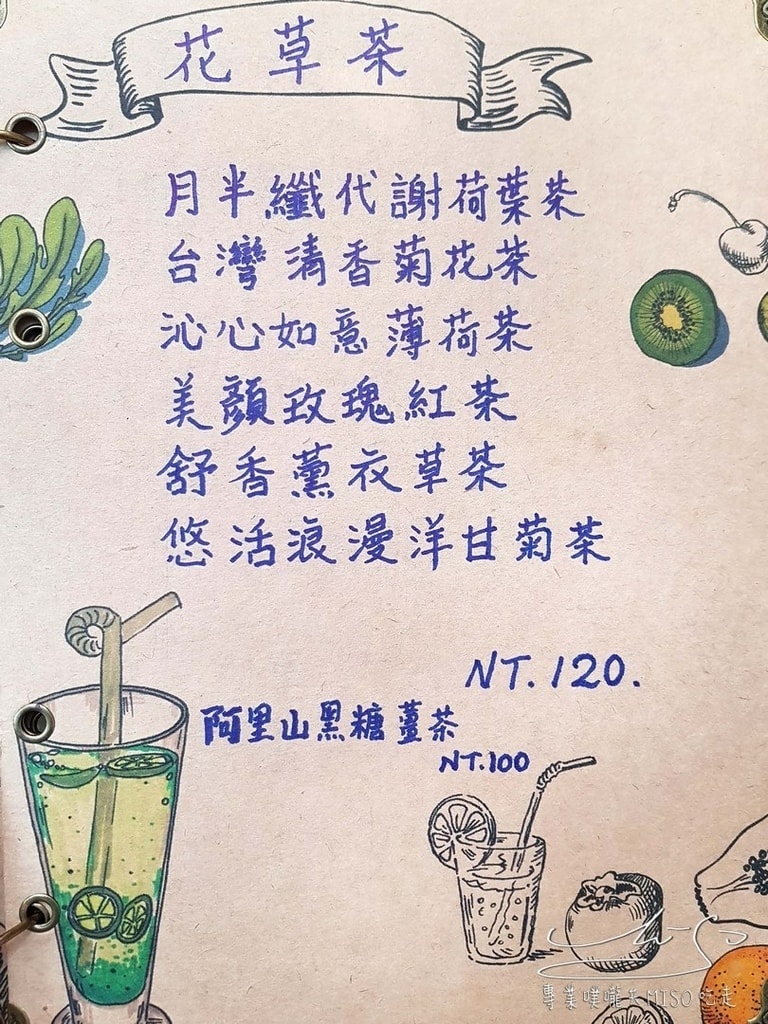 花草茶
月半纖代謝荷葉茶
台灣清香菊花茶
沁心如意薄荷茶
美顏玫瑰紅茶
舒香薰衣草茶
悠活浪漫洋甘菊茶
NT.120.
阿里山黑糖薑茶
NT.100
專業噗嚨共MISO吃走